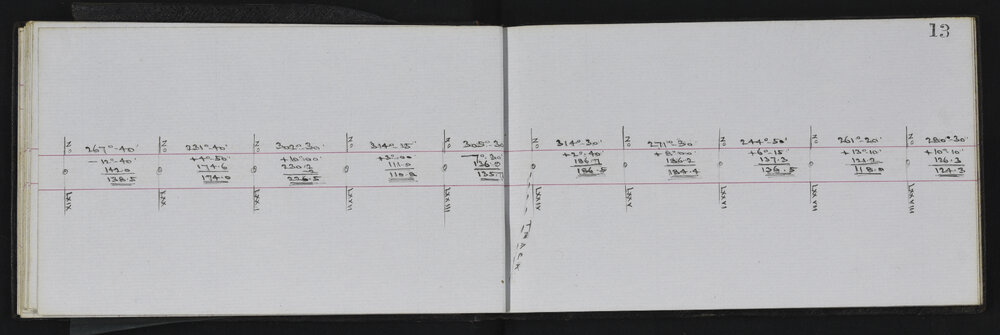 13
No
267°-40'
-12°-40'
142.0
138.5
LXIX
No
231°-40'
+4°-50'
174.6
174.0
LXX
No
302°-30'
+10°-00'
226.5
LXXI
No
314°-15'
+3°-00'
111.0
110.8
LXXII
No
305°-30'
-7°-30'
135.7
LXXIII
No
314°-30'
+2°-40'
186.7
186.5
LXXIV
TRACK
No
271°-30'
+8°-00'
186.2
184.4
LXXV
No
244°-50'
+6°-15'
137.3
136.5
LXXVI
No
261°-20'
+13°-10'
121.2
118.0
LXXVII
No
280°-30'
+10°-10'
126.3
124.3
LXXVIII